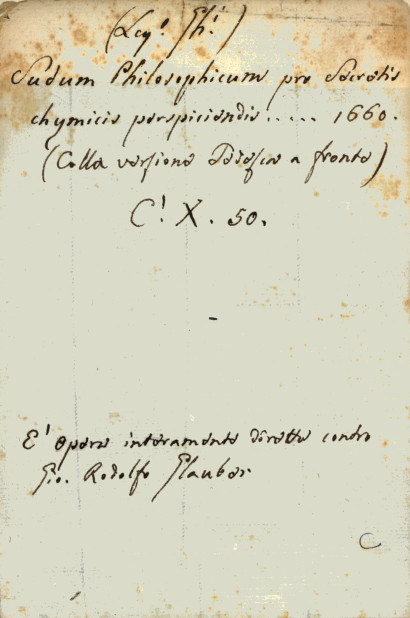 Sudum Philosophicum pro Secretis
chymicis perspiciendis ..... 1660.
(Colla versione Tedesca a fronte)
C! X. 50.
E' opera interamente diretta contro
Gio. Rodolfo Glauber
C